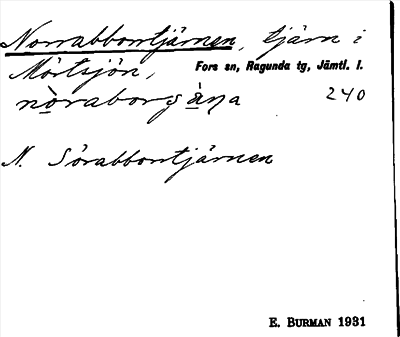 Norrabborrtjärnen, tjärn i
Mörtsjön, Fors sn, Ragunda tg, Jämtl. l.
nòraborgàṇa 240
N. Sörabborrtjärnen
E. BURMAN 1931